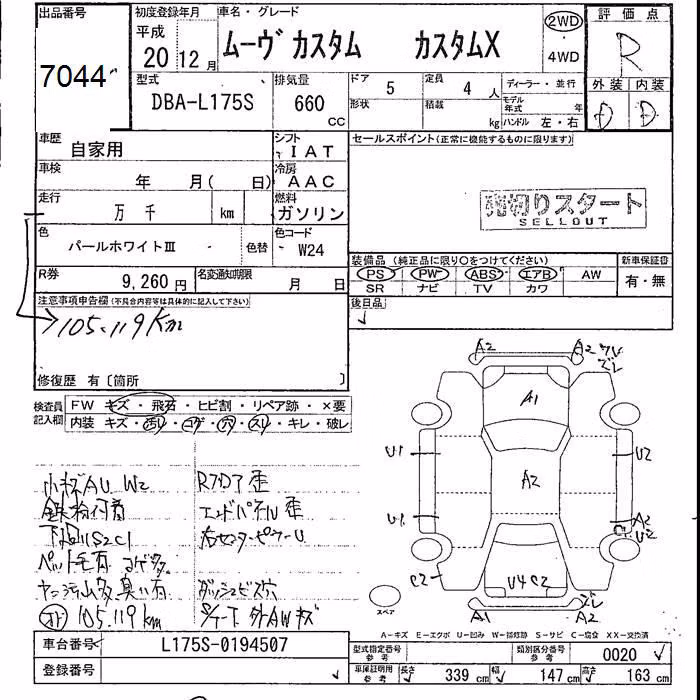 出品番号
7044
初度登録年月
平成
20 12月
車名・グレード
ムーヴ カスタム カスタムX
2WD
4WD
評価点
R
外装 内装
D D
型式
DBA-L175S
排気量
660
CC
ドア 5
定員 4人
形状
積載 kg
ディーラー・並行
モデル年式 年
ハンドル 左・右
車歴 自家用
シフト IAT
車検 年 月( 日)
冷房 AAC
走行 万 千 km
燃料 ガソリン
色 パールホワイトⅢ
色替
色コード W24
R券 9,260円
名変通知期限 月 日
セールスポイント(正常に機能するものに限ります)
売切りスタート
SELLOUT
装備品(純正品に限り○をつけてください)
PS PW ABS エアB AW
SR ナビ TV カワ
新車保証書
有・無
後日品
注意事項申告欄(不具合内容等は具体的に記入して下さい)
105.119Km
修復歴 有〔箇所 〕
検査員記入欄
FW キズ・飛石・ヒビ割・リペア跡・×要
内装 キズ・汚れ・コゲ・穴・スレ・キレ・破レ
小キズAU W2
鉄粉付着
下廻りS2C1
ペット毛有 コゲ多
ヤニ
臭い有
105.119km
Rフロア歪
エンドパネル歪
右センターピラーU
ダッシュビス穴
外AWキズ
A2 A2
ズレ
A1
U1 U2
A2
U1 A2
U2
C2
U4 S2
ズレ
A1 A2
スペア
A-キズ E-エクボ U-凹み W-補修跡 S-サビ C-腐食 XX-交換済
車台番号 L175S-0194507
登録番号
型式指定番号 参考
類別区分番号 参考 0020
車庫証明用 参考 長さ 339 cm 幅 147 cm 高さ 163 cm